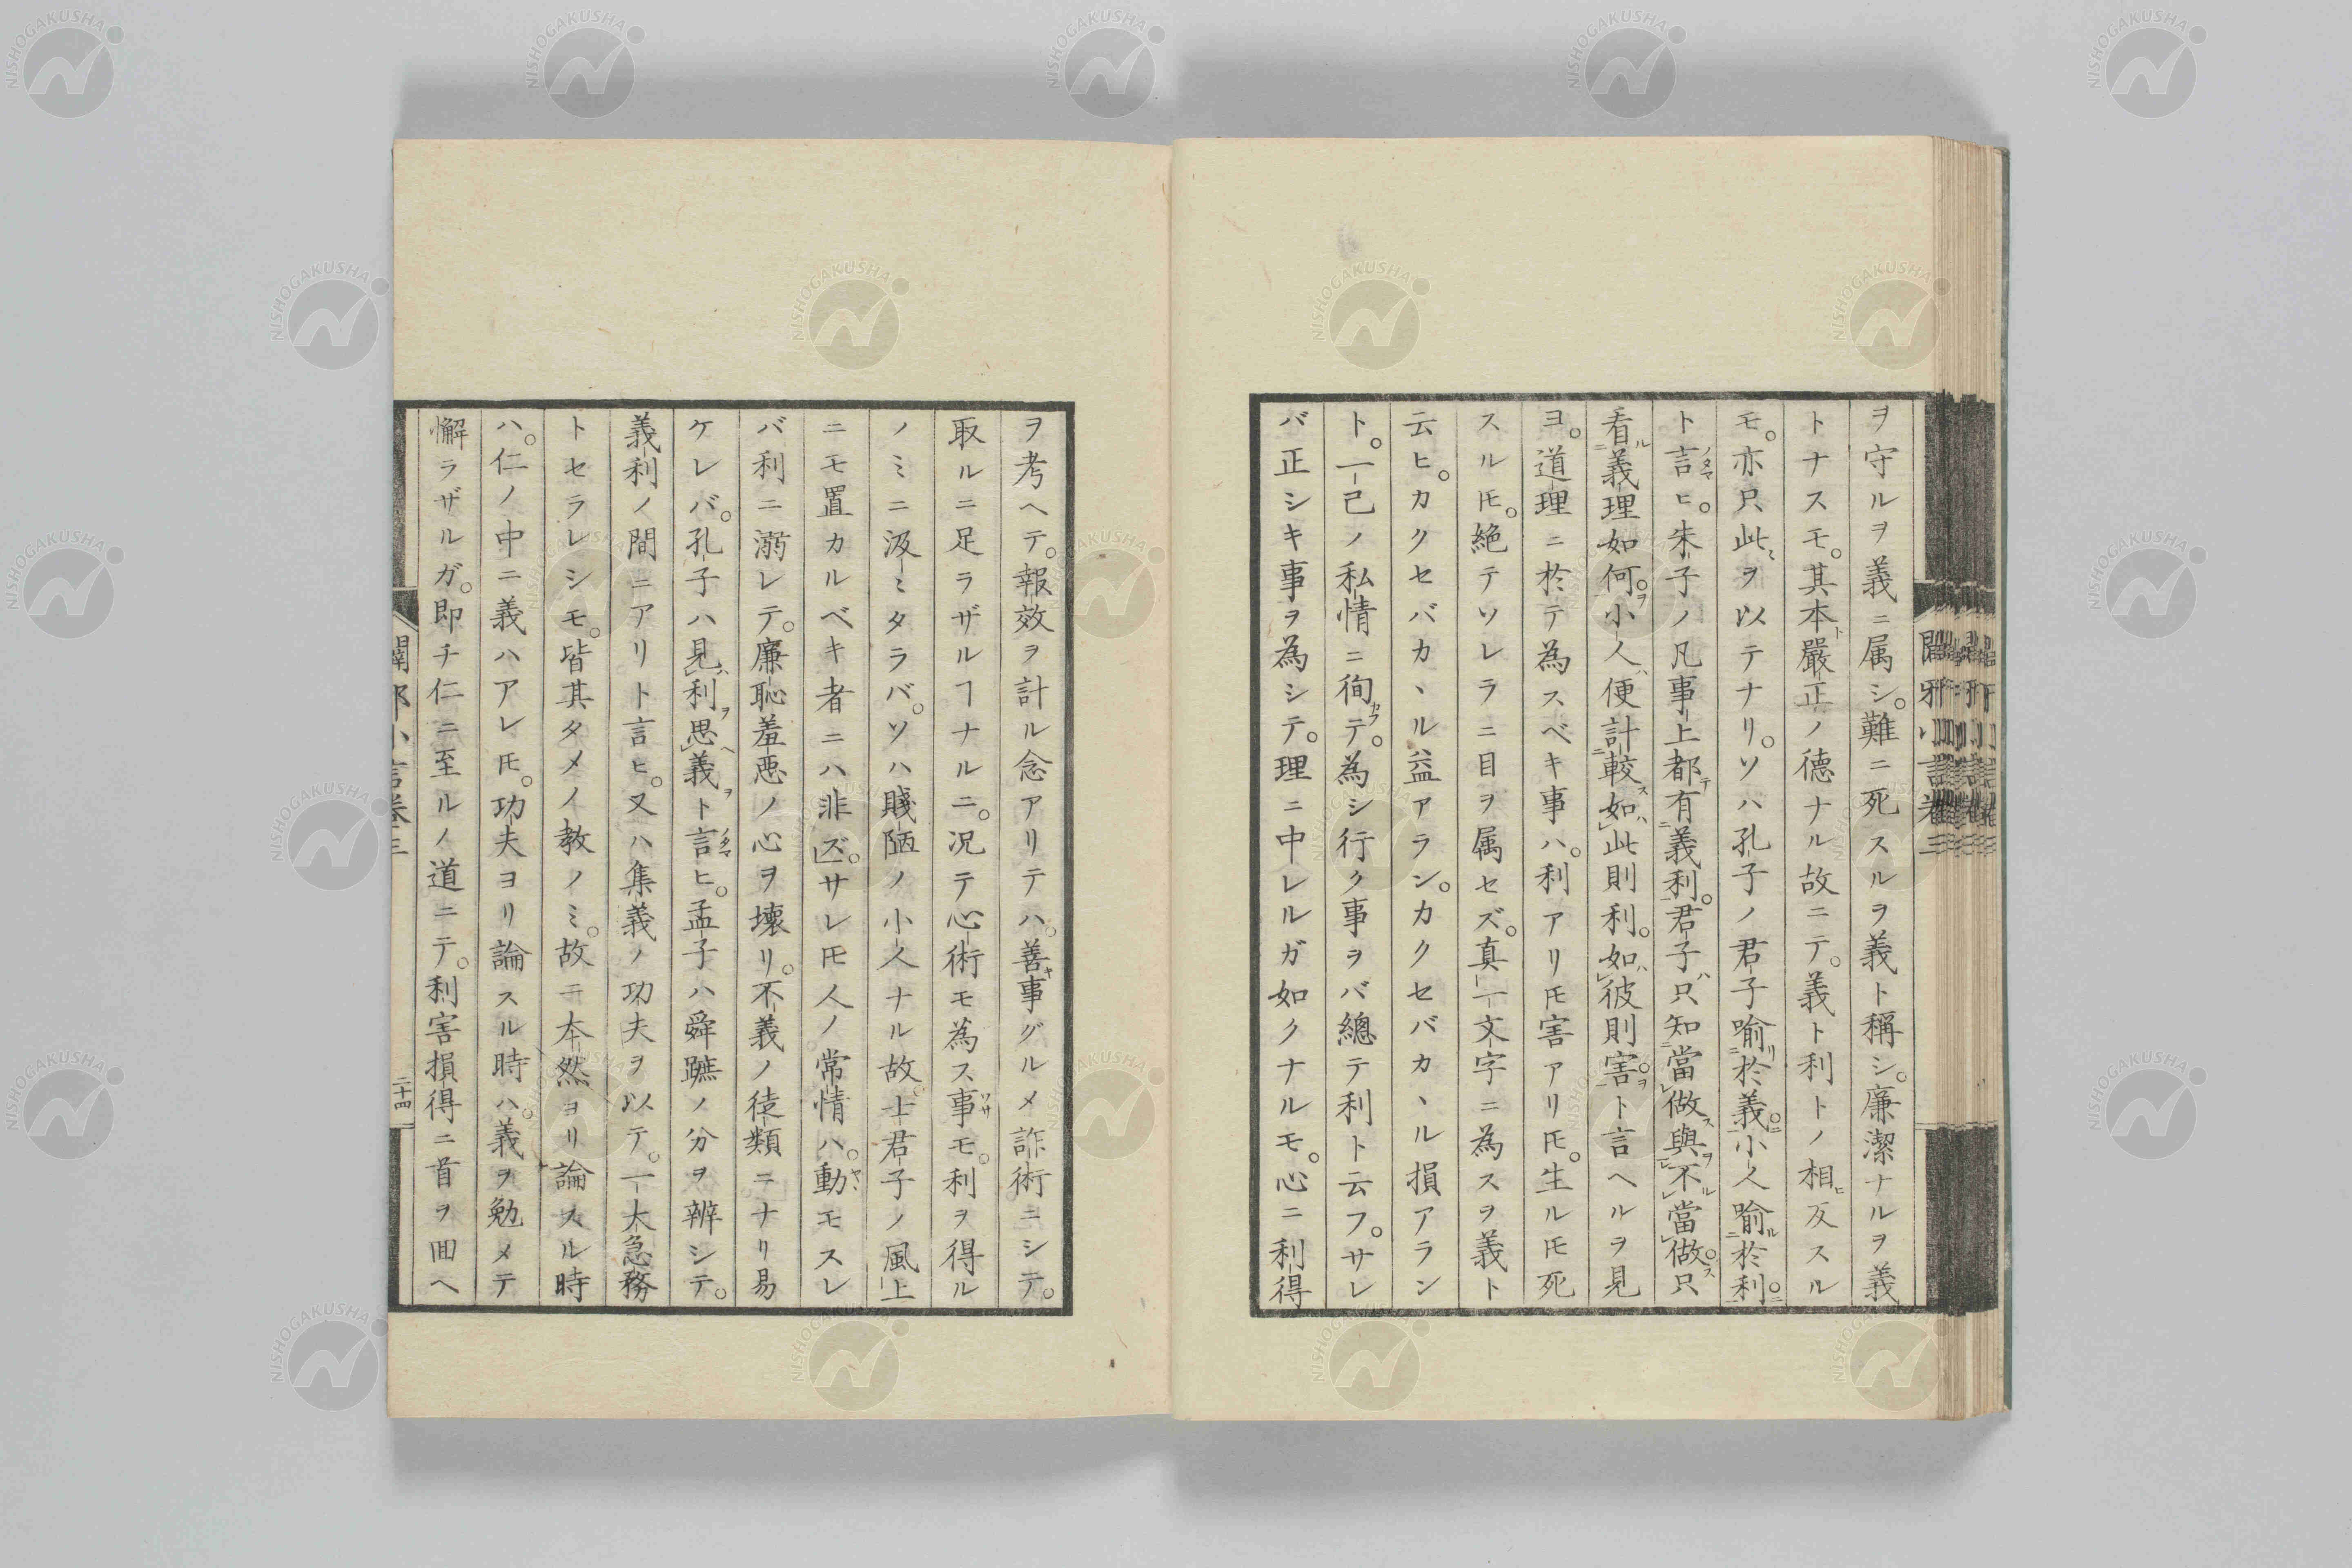 ヲ守ルヲ義ニ属シ。難ニ死スルヲ義ト稱シ。廉潔ナルヲ義
トナスモ。其本嚴正ノ德ナル故ニテ。義ト利トノ相反スル
モ。亦只此ヲ以テナリ。ソハ孔子ノ君子喩於義。小人喩於利。
ト言ヒ。朱子ノ凡事上都有義利。君子只知當做與不當做。只
看義理如何。小人便計較如此則利。如彼則害。ト言ヘルヲ見
ヨ。道理ニ於テ為スベキ事ハ。利アリ𪜈害アリ𪜈。生ル𪜈死
スル𪜈。絶テソレラニ目ヲ属セズ。真一文字ニ為スヲ義ト
云ヒ。カクセバカヽル益アラン。カクセバカヽル損アラン
ト。一己ノ私情ニ徇テ。為シ行ク事ヲバ總テ利ト云フ。サレ
バ正シキ事ヲ為シテ。理ニ中レルガ如クナルモ。心ニ利得
ヲ考ヘテ。報效ヲ計ル念アリテハ。善事グルメ詐術ニシテ。
取ルニ足ラザルヿナルニ。况テ心術モ為ス事モ。利ヲ得ル
ノミニ汲ミタラバ。ソハ賤陋ノ小人ナル故。士君子ノ風上
ニモ置カルベキ者ニハ非ズ。サレ𪜈人ノ常情ハ。動モスレ
バ利ニ溺レテ。廉恥羞悪ノ心ヲ壞リ。不義ノ徒類ニナリ易
ケレバ。孔子ハ見利思義ト言ヒ。孟子ハ舜蹠ノ分ヲ辨シテ。
義利ノ間ニアリト言ヒ。又ハ集義ノ功夫ヲ以テ。一大急務
トセラレシモ。皆其タメノ教ノミ。故ニ本然ヨリ論スル時
ハ。仁ノ中ニ義ハアレ𪜈。功夫ヨリ論スル時ハ。義ヲ勉メテ
懈ラザルガ。即チ仁ニ至ルノ道ニテ。利害損得ニ首ヲ囬ヘ
闢邪小言卷三
二十四
NISHOGAKUSHA